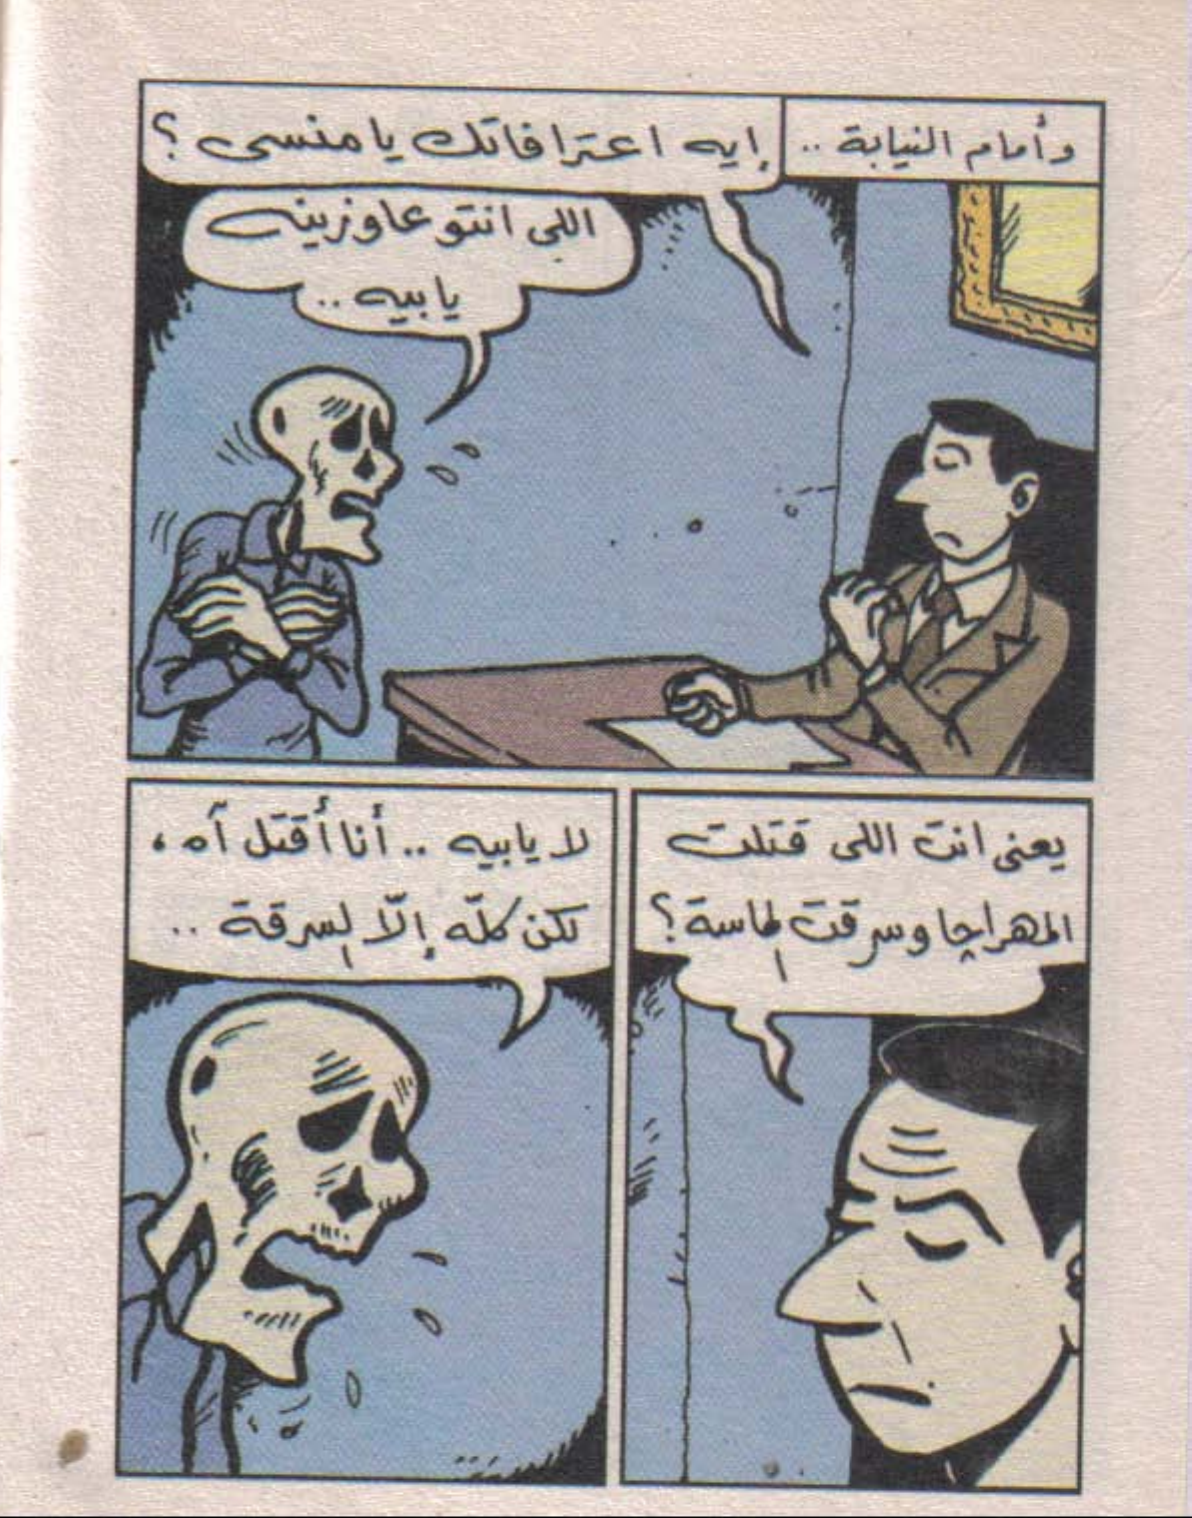 وأمام النيابة ..
إيه اعترافاتك يا منسى ؟
اللى انتو عاوزينه
يا بيه ..
يعنى انت اللى قتلت
المهراچا وسرقت الماسة ؟
لا يا بيه .. أنا أقتل آه ،
لكن كلّه إلّا السرقة ..